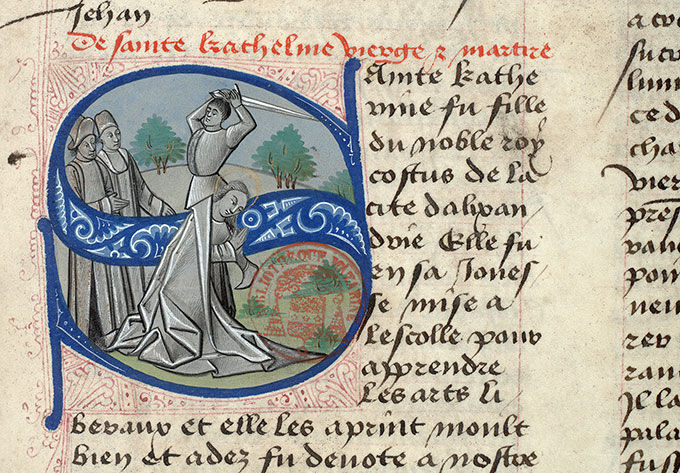 Jehan
De sainte katheline vierge & martire
Sainte kathe
rine fu fille
du noble roy
costus de la
cite dalixan
drie Elle fu
en sa Jones
se mise a
lescolle pour
apprendre
les arts li
beraux et elle les aprint moult
bien et adez fu devote a nostre
ce d
cha
vier
Il la
pala
fuss